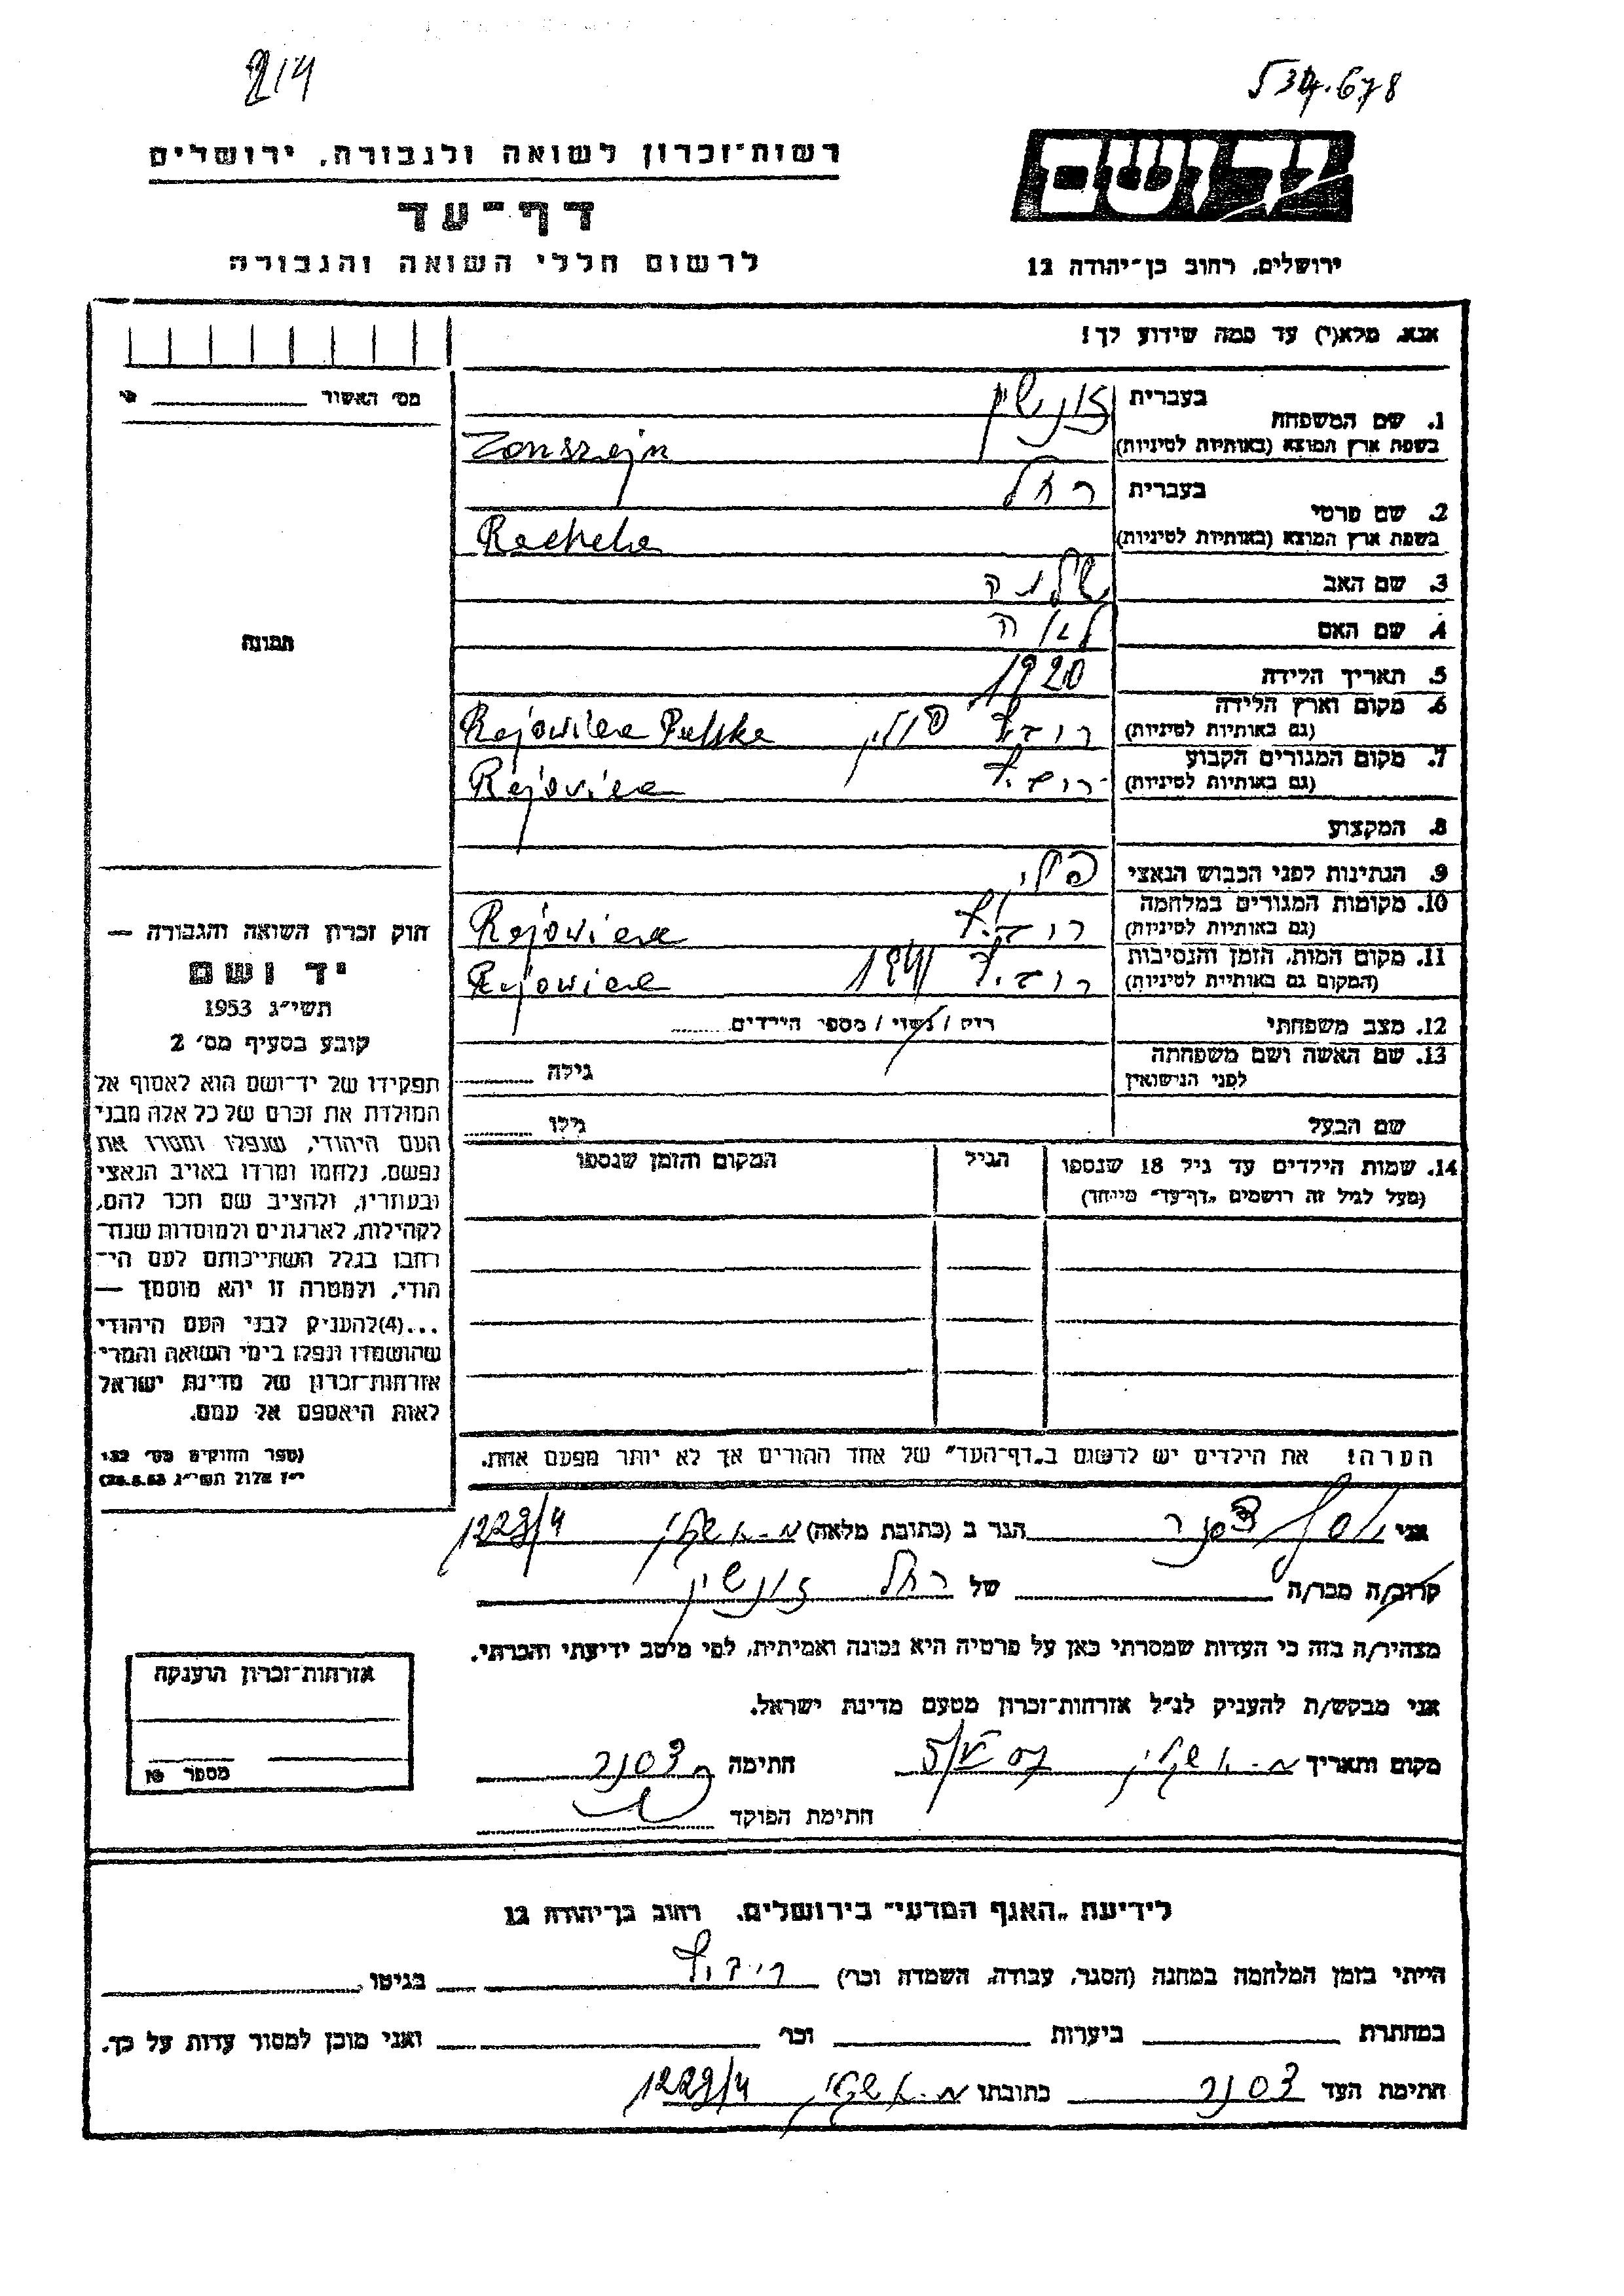 214
534.678
רשות־זכרון לשואה ולגבורה, ירושלים
דף־עד
לרשום חללי השואה והגבורה
יד ושם
ירושלים, רחוב בן־יהודה 12
אנא, מלא(י) עד כמה שידוע לך!
מס׳ האשור
1. שם המשפחה
בעברית זונשיין
בשפת ארץ המוצא (באותיות לטיניות) Zonszejn
2. שם פרטי
בעברית רחל
בשפת ארץ המוצא (באותיות לטיניות) Rachela
3. שם האב שלמה
4. שם האם לאה
5. תאריך הלידה 1920
6. מקום וארץ הלידה
(גם באותיות לטיניות) פולין Rejowiec Polska
7. מקום המגורים הקבוע
(גם באותיות לטיניות) Rejowiec
8. המקצוע
9. הנתינות לפני הכבוש הנאצי פולני
10. מקומות המגורים במלחמה
(גם באותיות לטיניות) Rejowiec
11. מקום המות, הזמן והנסיבות
(המקום גם באותיות לטיניות) 1941 Rejowiec
12. מצב משפחתי רוק / נשוי / מספר הילדים
13. שם האשה ושם משפחתה
לפני הנישואין גילה
שם הבעל גילו
14. שמות הילדים עד גיל 18 שנספו
(מעל לגיל זה רושמים „דף־עד״ מיוחד)
הגיל
המקום והזמן שנספו
תמונה
חוק זכרון השואה והגבורה —
יד ושם
תשי״ג 1953
קובע בסעיף מס׳ 2
תפקידו של יד־ושם הוא לאסוף אל
המולדת את זכרם של כל אלה מבני
העם היהודי, שנפלו ומסרו את
נפשם, נלחמו ומרדו באויב הנאצי
ובעוזריו, ולהציב שם וזכר להם,
לקהילות, לארגונים ולמוסדות שנח־
רבו בגלל השתייכותם לעם הי־
הודי, ולמטרה זו יהא מוסמך —
...(4)להעניק לבני העם היהודי
שהושמדו ונפלו בימי השואה והמרי
אזרחות־זכרון של מדינת ישראל
לאות היאספם אל עמם.
(ספר החוקים מס׳ 132
י״ז אלול תשי״ג 28.8.53)
הערה! את הילדים יש לרשום ב„דף־העד״ של אחד ההורים אך לא יותר מפעם אחת.
אני יוסף הגר ב (כתובת מלאה) 1229/4
קרוב/ה מכר/ה של רחל זונשיין
מצהיר/ה בזה כי העדות שמסרתי כאן על פרטיה היא נכונה ואמיתית, לפי מיטב ידיעתי והכרתי.
אני מבקש/ת להעניק לנ״ל אזרחות־זכרון מטעם מדינת ישראל.
מקום ותאריך חתימה
חתימת הפוקד
אזרחות־זכרון הוענקה
מספר
לידיעת „האגף המדעי״ בירושלים. רחוב בן־יהודה 12
הייתי בזמן המלחמה במחנה (הסגר, עבודה, השמדה וכר׳) בגיטו
במחתרת ביערות וכר׳ ואני מוכן למסור עדות על כך.
חתימת העד כתובתו 1229/4